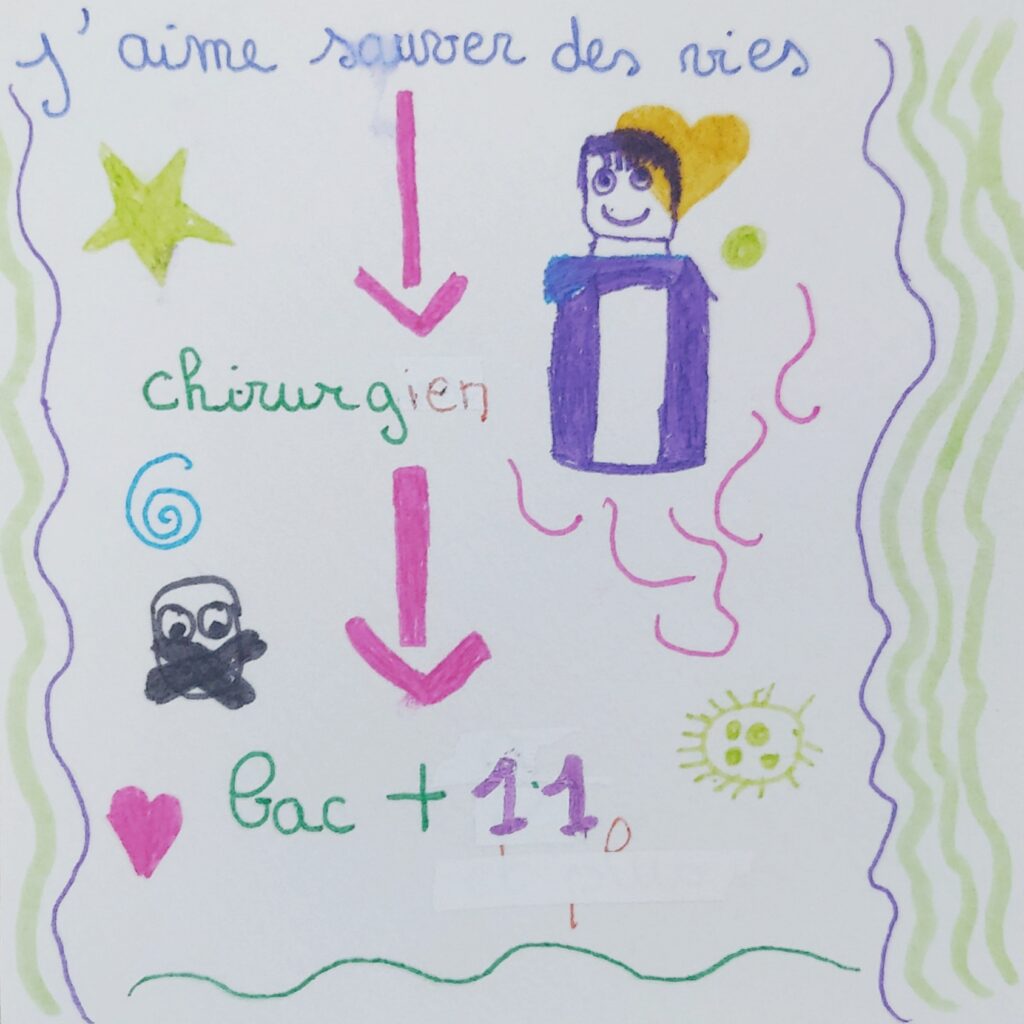 j'aime sauver des vies
chirurgien
bac + 11